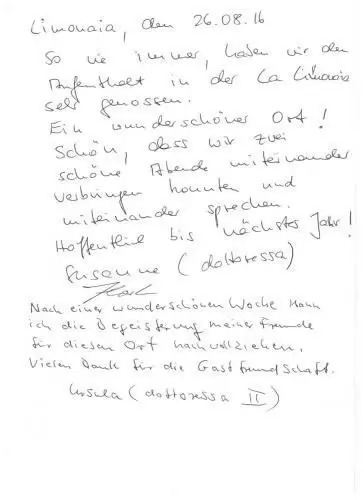 Limonaia, den 26.08.16
So wie immer, haben wir den
Aufenthalt in der La Limonaia
sehr genossen.
Ein wunderschöner Ort!
Schön, dass wir zwei
schöne Abende miteinander
verbringen konnten und
miteinander sprechen.
Hoffentlich bis nächstes Jahr!
Susanne (dottoressa)
Nach einer wunderschönen Woche kann
ich die Begeisterung meiner Freunde
für diesen Ort nachvollziehen.
Vielen Dank für die Gastfreundschaft.
Ursula (dottoressa II)